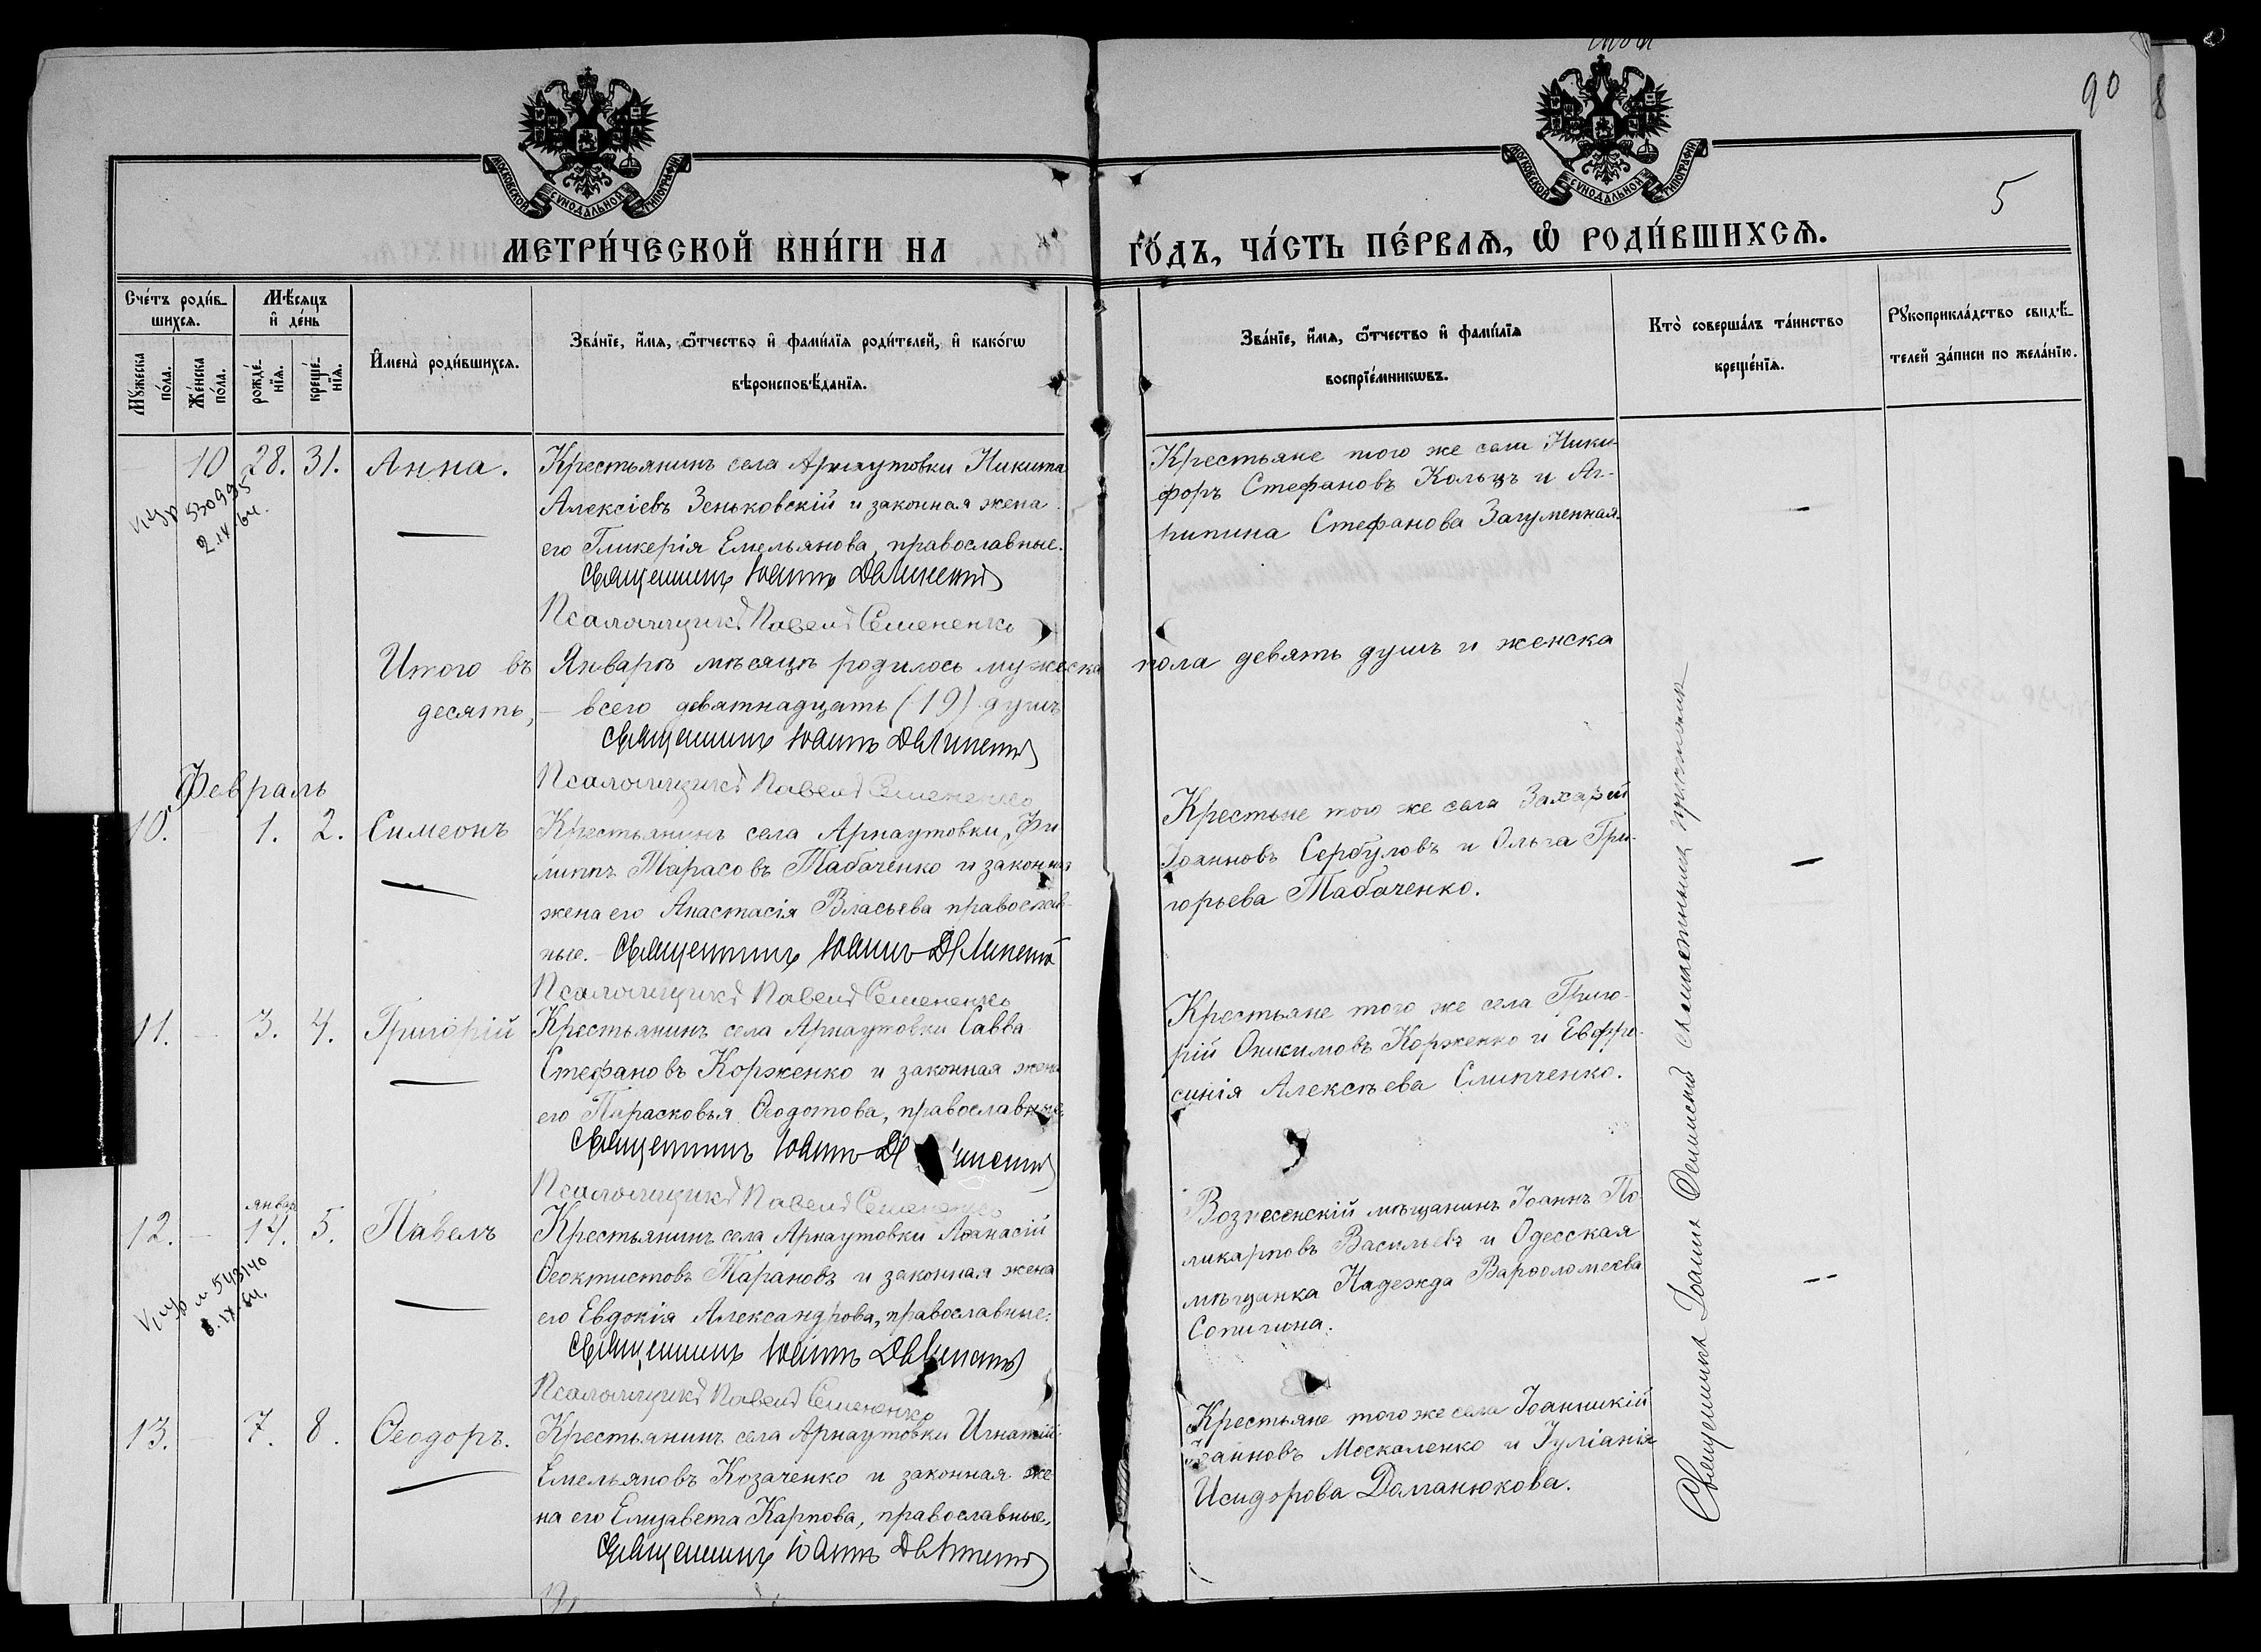 90
5
МОСКОВСКОЙ СѴНОДАЛЬНОЙ ТИПОГРАФІИ
МОСКОВСКОЙ СѴНОДАЛЬНОЙ ТИПОГРАФІИ
МЕТРИ́ЧЕСКОЙ КНИ́ГИ НА ГО́ДЪ, ЧА́СТЬ ПЕ́РВАѦ, Ѡ҆ РОДИ́ВШИХСѦ.
Сче́тъ роди́в-
шихсѧ.
Мꙋ́жеска
по́ла.
Же́нска
по́ла.
Мѣ́сяцъ
и҆ де́нь
рожде́-
нїѧ.
креще́-
нїѧ.
И҆мена̀ роди́вшихсѧ.
Зва́нїе, и҆́мѧ, ѻ҆́тчество и҆ фами́лїѧ роди́телей, и҆ како́гѡ
вѣроисповѣ́данїѧ.
Зва́нїе, и҆́мѧ, ѻ҆́тчество и҆ фами́лїѧ
воспрїе́мникѡвъ.
Кто̀ соверша́лъ та́инство
креще́нїѧ.
Рꙋкоприкла́дство свидѣ́-
телей за́писи по жела́нїю.
10 28. 31. Анна.
Крестьянинъ села Арнаутовки Никита
Алексіевъ Зеньковскій и законная жена
его Гликерія Емельянова, православные.
Священникъ Іоаннъ
Псаломщикъ Павелъ Семененко
Крестьяне того же села Ники-
форъ Стефановъ Кольцъ и Аг-
рипина Стефанова Загуменная.
Итого въ Январѣ мѣсяцѣ родилось мужеска пола девять душъ и женска
десять, — всего девятнадцать (19) душъ
Священникъ Іоаннъ
Псаломщикъ Павелъ Семененко
Февраль
10. 1. 2. Симеонъ
Крестьянинъ села Арнаутовки, Фи
липпъ Тарасовъ Табаченко и законная
жена его Анастасія Власьева православ-
ные. - Священникъ Іоаннъ
Псаломщикъ Павелъ Семененко
Крестьне того же села Захарій
Іоанновъ Сербуловъ и Ольга Гри-
горьева Табаченко.
11. 3. 4. Григорій
Крестьянинъ села Арнаутовки Савва
Стефановъ Корженко и законная жена
его Парасковья Ѳеодотова, православные
Священникъ Іоаннъ
Псаломщикъ Павелъ Семененко
Крестьяне того же села Григо-
рій Онисимовъ Корженко и Евфро-
синія Алексѣева Слипченко.
январ
12. 14. 5. Павелъ
543140
Крестьянинъ села Арнаутовки Аѳанасій
Ѳеоктистовъ Тарановъ и законная жена
его Евдокія Александрова, православные.
Священникъ Іоаннъ
Псаломщикъ Павелъ Семененко
Вознесенскій мѣщанинъ Іоаннъ По
ликарповъ Васильевъ и Одесская
мѣщанка Надежда Варѳоломеева
Сопигина.
13. 7. 8. Ѳеодоръ.
Крестьянинъ села Арнаутовки Игнатій
Емельяновъ Козаченко и законная же
на его Елизавета Карпова, православные,
Священникъ Іоаннъ
Крестьяне того же села Іоанникій
Іоанновъ Москаленко и Іуліанія
Исидорова Доманюкова.
Священникъ Іоаннъ